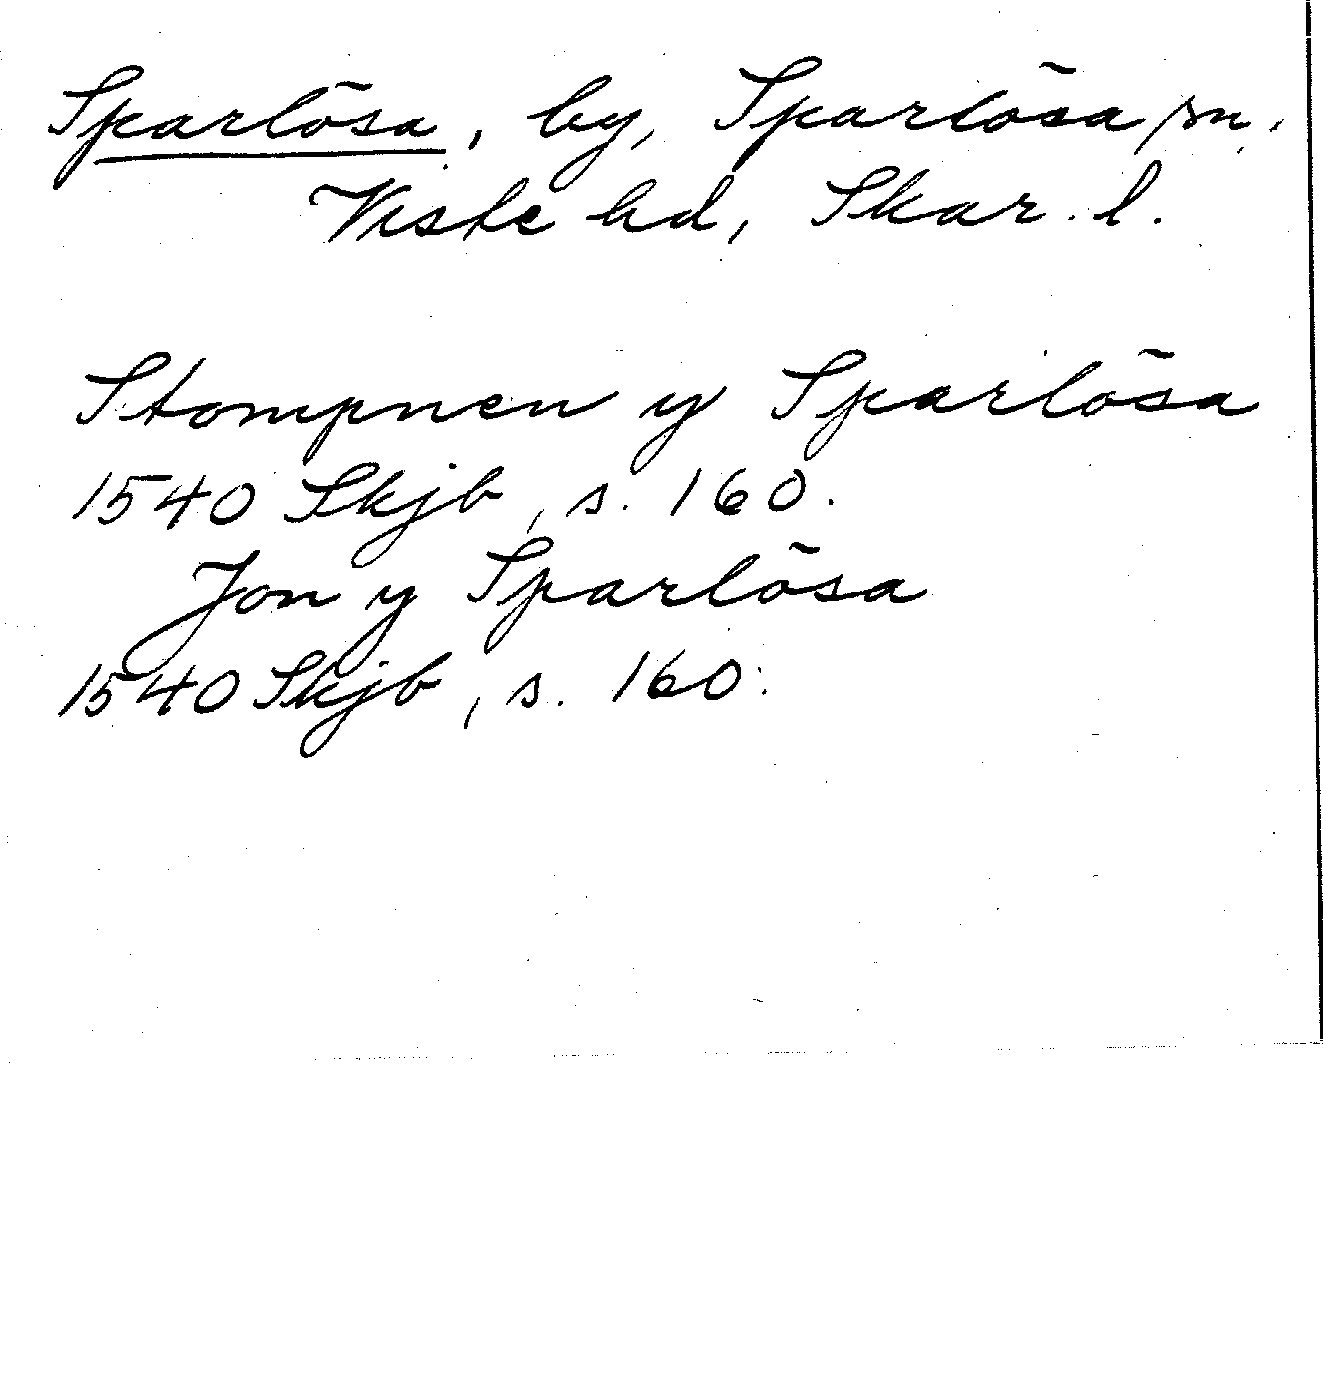 Sparlösa, by, Sparlösa sn,
Viste hd, Skar. l.
Stompnen y Sparlösa
1540 Skjb, s. 160.
Jon y Sparlösa
1540 Skjb, s. 160.